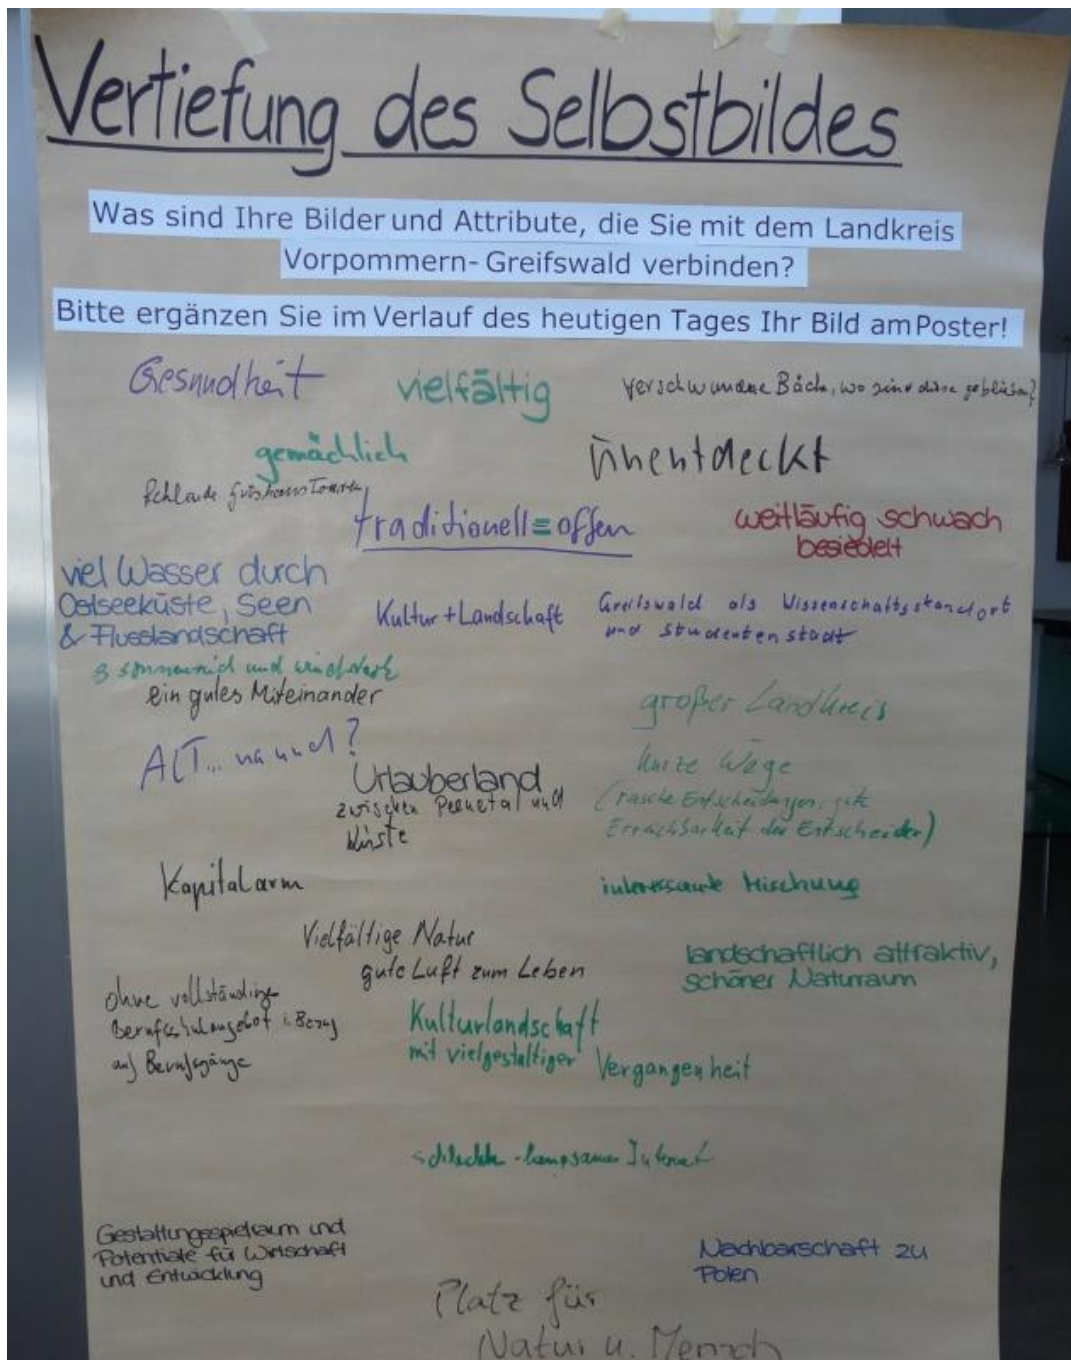 Vertiefung des Selbstbildes
Was sind Ihre Bilder und Attribute, die Sie mit dem Landkreis
Vorpommern-Greifswald verbinden?
Bitte ergänzen Sie im Verlauf des heutigen Tages Ihr Bild am Poster!
Gesundheit
vielfältig
verschwundene Bäche, wo sind diese geblieben?
gemächlich
unentdeckt
fehlende
traditionell = offen
weitläufig schwach
besiedelt
viel Wasser durch
Ostseeküste, Seen
& Flusslandschaft
Kultur + Landschaft
Greifswald als Wissenschaftsstandort
und Studentenstadt
sonnenreich und windstark
ein gutes Miteinander
großer Landkreis
ALT... na und?
Urlauberland
zwischen Peenetal und
Küste
kurze Wege
(rasche Entscheidungen, gute
Erreichbarkeit der Entscheider)
Kapitalarm
interessante Mischung
Vielfältige Natur
gute Luft zum Leben
landschaftlich attraktiv,
schöner Naturraum
ohne vollständige
Berufsschulangebot i. Bezug
auf Berufsgänge
Kulturlandschaft
mit vielgestaltiger Vergangenheit
langsames Internet
Gestaltungsspielraum und
Potentiale für Wirtschaft
und Entwicklung
Nachbarschaft zu
Polen
Platz für
Natur u. Mensch